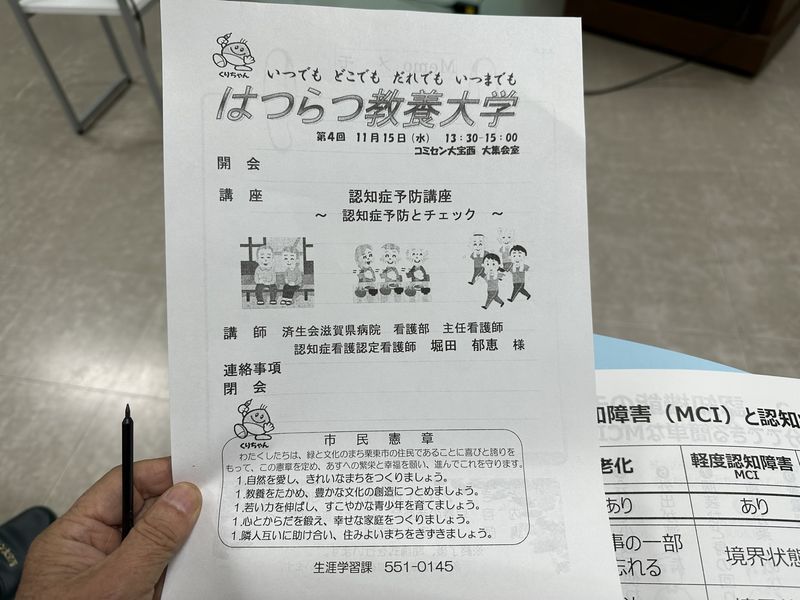 くりちゃん
いつでも どこでも だれでも いつまでも
はつらつ教養大学
第4回 11月15日(水) 13:30-15:00
コミセン大宝西 大集会室
開 会
講 座 認知症予防講座
～ 認知症予防とチェック ～
講 師 済生会滋賀県病院 看護部 主任看護師
認知症看護認定看護師 堀田 郁恵 様
連絡事項
閉 会
くりちゃん
市 民 憲 章
わたくしたちは、緑と文化のまち栗東市の住民であることに喜びと誇りを
もって、この憲章を定め、あすへの繁栄と幸福を願い、進んでこれを守ります。
1.自然を愛し、きれいなまちをつくりましょう。
1.教養をたかめ、豊かな文化の創造につとめましょう。
1.若い力を伸ばし、すこやかな青少年を育てましょう。
1.心とからだを鍛え、幸せな家庭をつくりましょう。
1.隣人互いに助け合い、住みよいまちをきずきましょう。
生涯学習課 551-0145
障害（MCI）と認知
老化 軽度認知障害
MCI
あり あり
事の一部
忘れる 境界状態